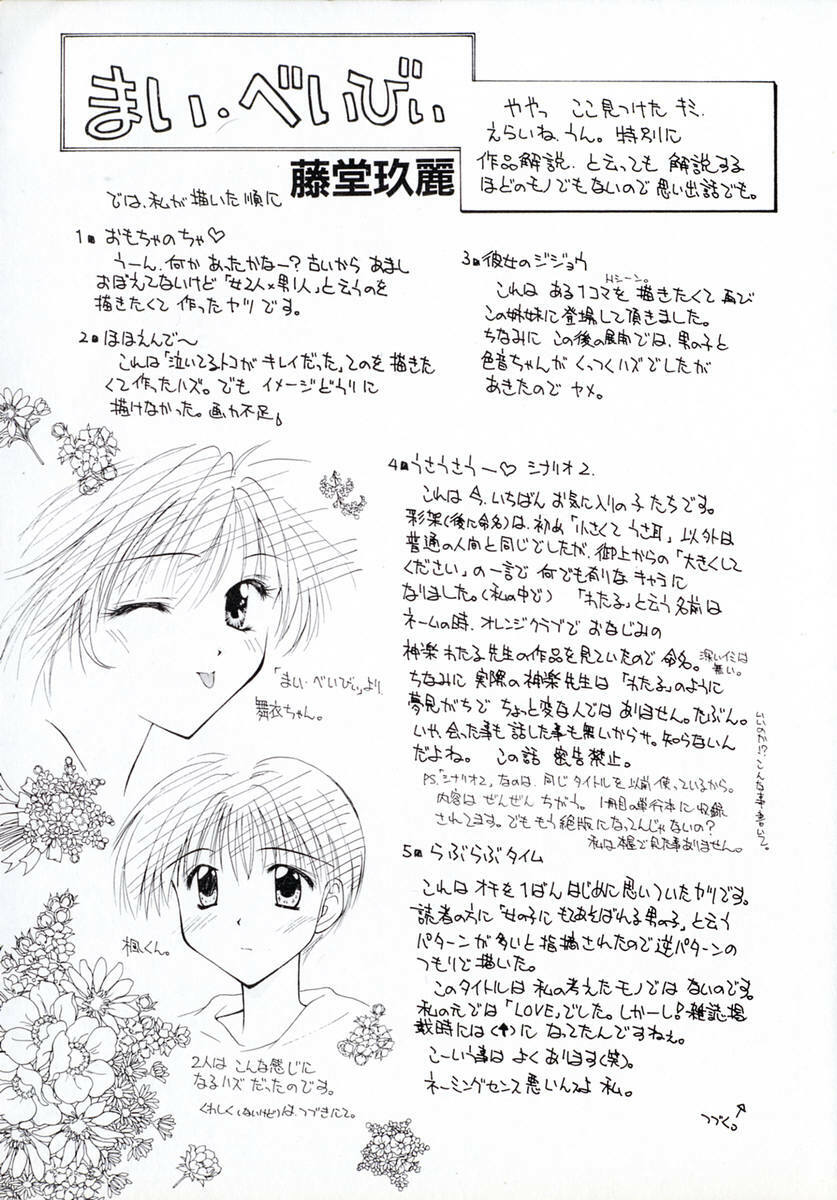 まい・べいびぃ
藤堂玖麗
ややっ ここ見つけた キミ、
えらいね、うん。特別に
作品解説、と云っても 解説する
ほどのモノでもないので 思い出話でも。
では、私が描いた順に
1. おもちゃのちゃ♡
うーん、何か あったかなー？古いから あまし
おぼえてないけど「女2人×男1人」と云うのを
描きたくて 作ったヤツ です。
2. ほほえんで〜
これは「泣いてるトコが キレイだった」てのを 描きた
くて作ったハズ。でも イメージどうりに
描けなかった。画力不足。
3. 彼女のジジョウ
Hシーン。
これは ある1コマを 描きたくて 再び
この姉妹に登場して頂きました。
ちなみに この後の展開では、男の子と
色音ちゃんが くっつくハズでしたが
あきたので ヤメ。
4. うさうさうー♡ シナリオ2.
これは 今、いちばん お気に入りの子たちです。
彩架(後に命名)は、初め「小さくて うさ耳」以外は
普通の人間と同じでしたが、御上からの「大きくして
ください」の一言で 何でも有りな キャラに
なりました。(私の中で) 「わたる」と云う名前は
ネームの時、オレンジクラブで おなじみの
神楽わたる先生の作品を見ていたので命名。
深いイミは
無い。
ちなみに 実際の神楽先生は「わたる」のように
夢見がちで ちょっと変な人では ありません。たぶん。
いや、会った事も 話した事も 無いからサ。知らないん
だよね。 この話 密告禁止。
いいのか!?こんな事書いて。
PS.「シナリオ2」なのは、同じタイトルを以前使っているから。
内容は ぜんぜん ちがう。1冊目の単行本に収録
されてます。でも もう絶版になってんじゃないの？
私は本屋で見た事ありません。
5. らぶらぶタイム
これは オチを 1ばん はじめに思いついたヤツです。
読者の方に「女の子に もてあそばれる男の子」と云う
パターンが多いと指摘されたので逆パターンの
つもりで描いた。
このタイトルは 私の考えた モノでは ないのです。
私の元では「LOVE」でした。しかーし！雑誌掲
載時には(↑)に なってたんですねぇ。
こーいう事は よく あります(笑)。
ネーミングセンス悪いんよ 私。
つづく。
「まい・べいびぃ」より、
舞衣ちゃん。
楓くん。
2人は こんな感じに
なるハズ だったのです。
くわしく(しないけど)は、つづきにて。